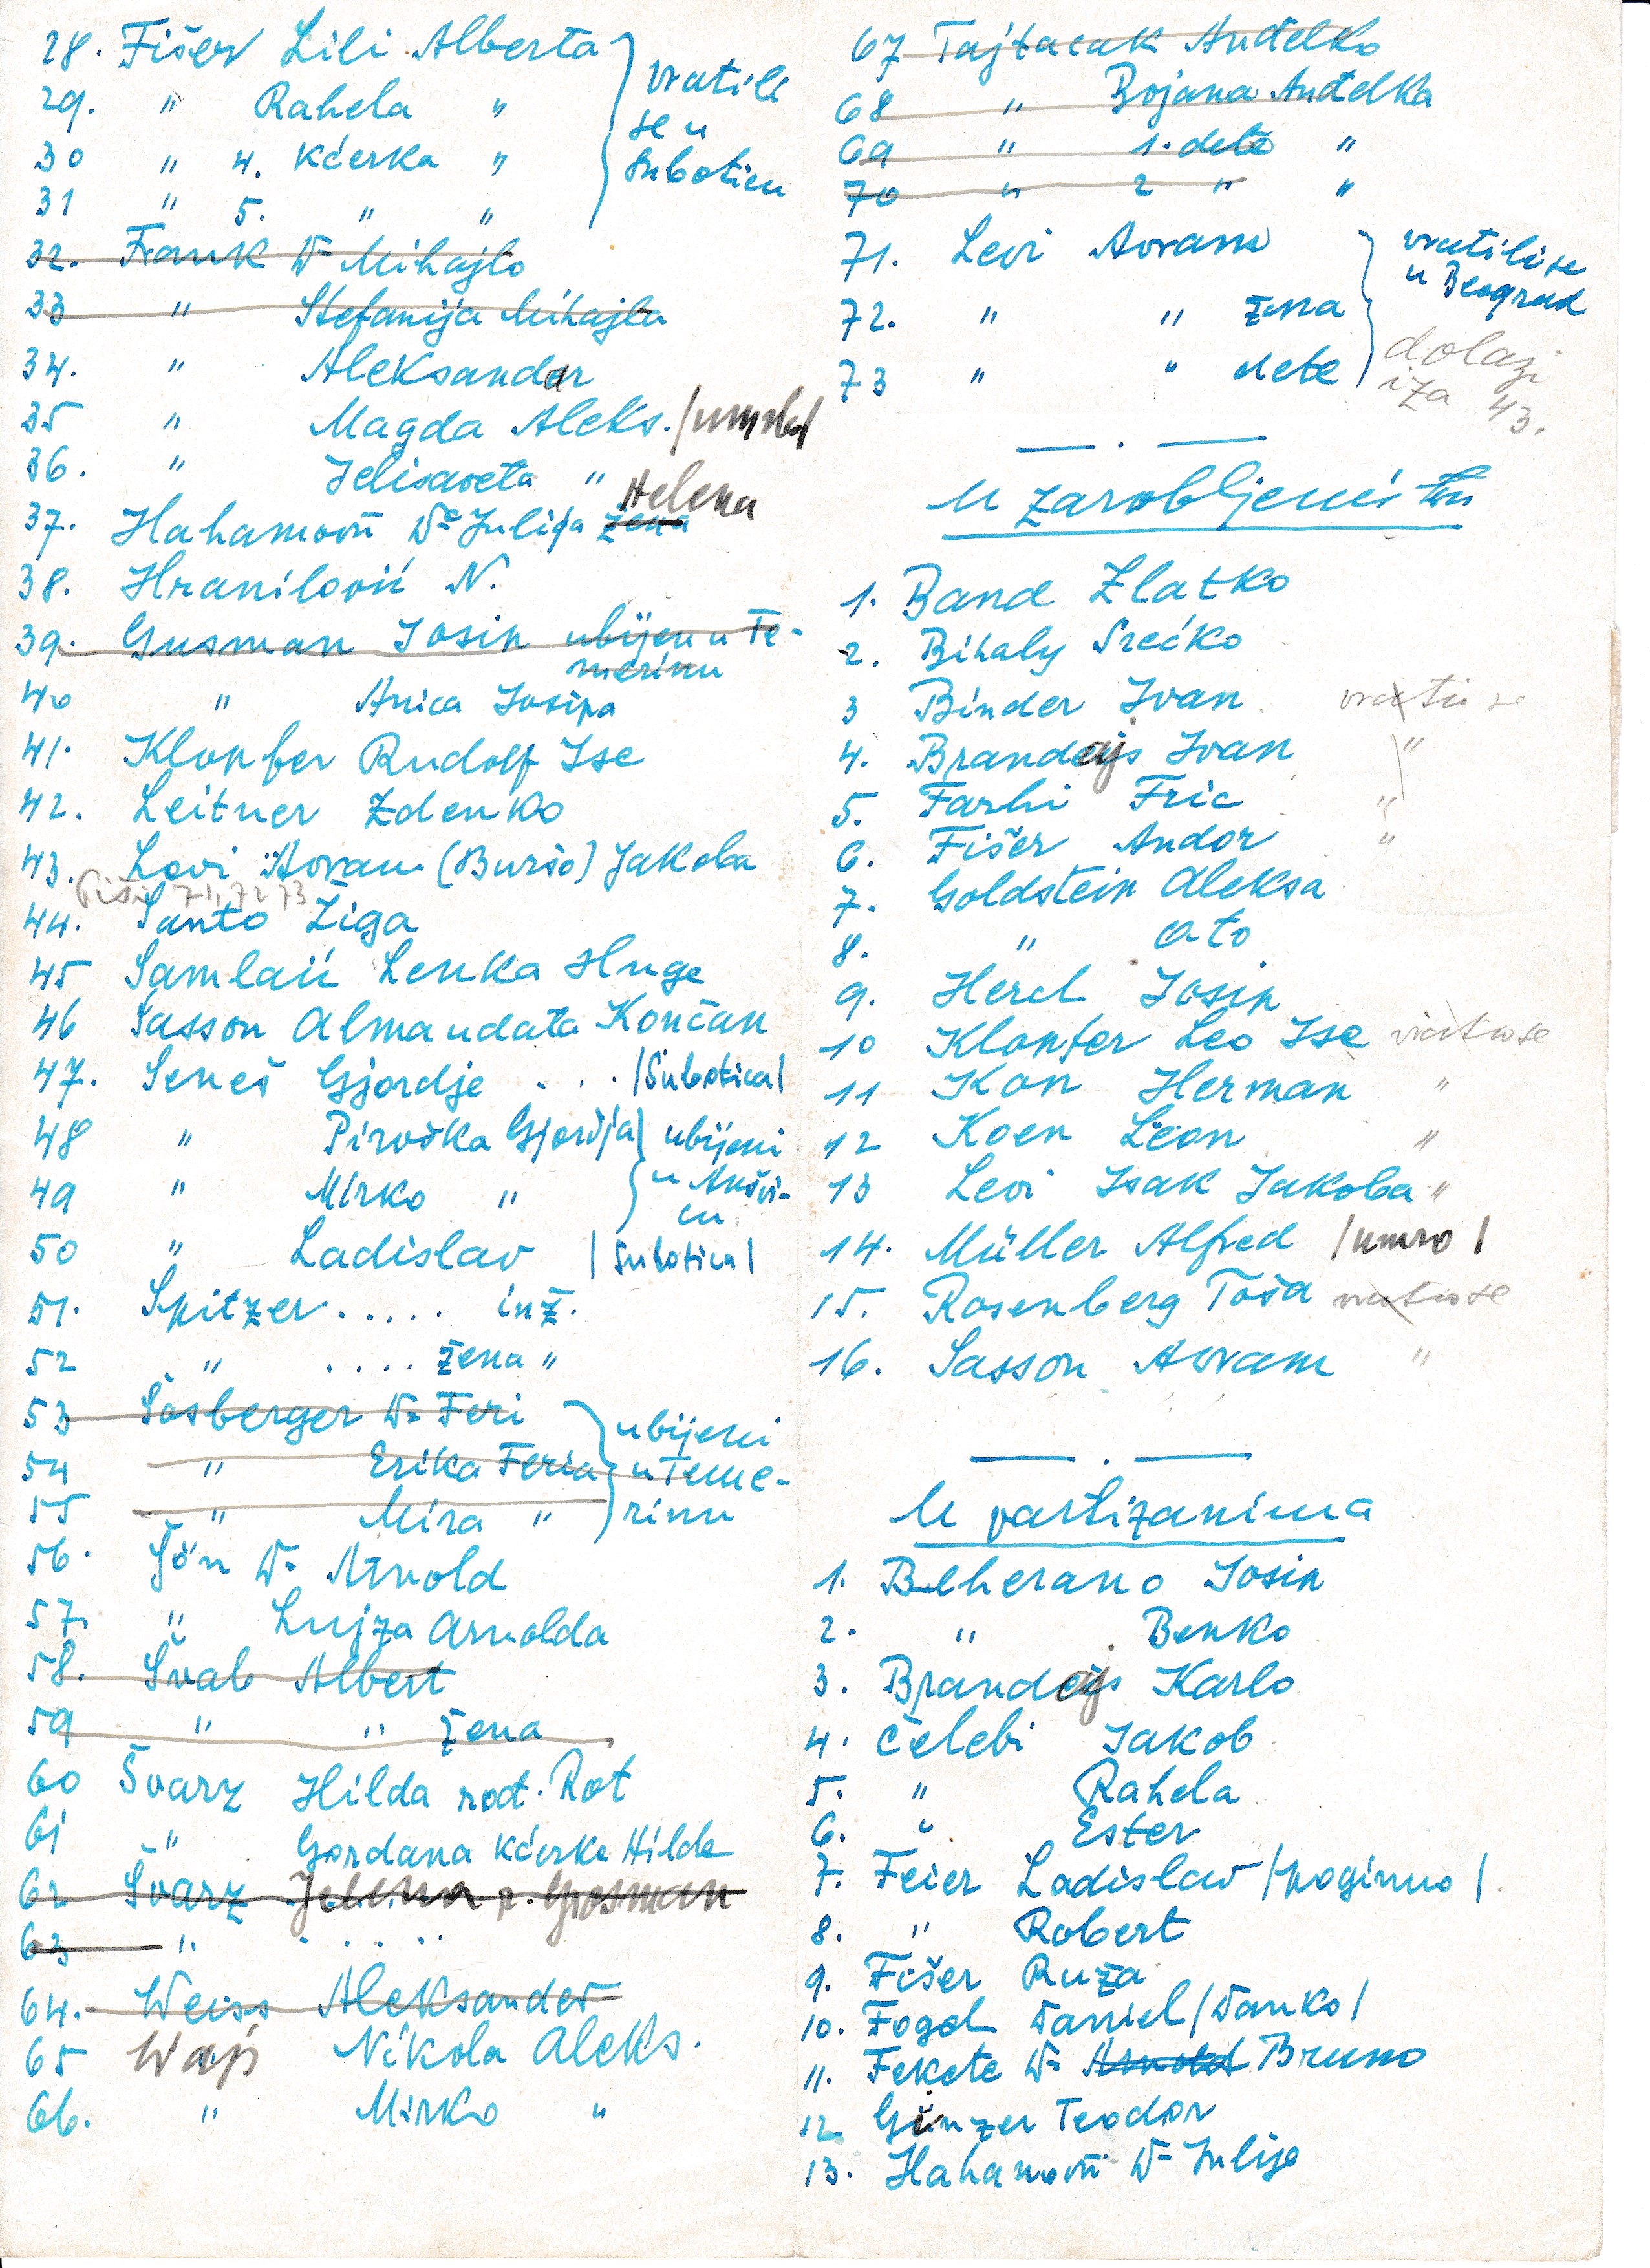 28. Fišer Lili Alberta
29. " Rahela "
vratili
se u
Suboticu
30 " 4. kćerka "
31 " 5. " "
32. Frank Dr Mihajlo
33 " Stefanija Mihajla
34. " Aleksandar
35 " Magda Aleks. /umrla/
36. " Jelisaveta "
37. Hahamović Dr Julija žena Helena
38. Hranilović N.
39. Gusman Josip ubijen u Te-
merinu
40 " Anica Josipa
41. Klopfer Rudolf Ise
42. Leitner Zdenko
43. Levi Avram (Buršo) Jakoba
71, 72 73
44. Santo Žiga
45 Samlaić Lenka Huge
46 Sasson Alma udata Končan
47. Seneš Gjordje . . . /Subotica/
48 " Piroška Gjordja
49 " Mirko "
ubijeni
u Aušvi-
cu
50 " Ladislav /Subotica/
51. Spitzer ..... inž.
52 " .... žena "
53 Šosberger Dr Feri
54 " Erika Feria
55 " Mira "
ubijeni
u Teme-
rinu
56. Šön Dr Arnold
57. " Lujza Arnolda
58. Švab Albert
59 " " žena
60 Švarz Hilda rođ. Rot
61 " Gordana kćerka Hilde
62 Švarz Jelena r. Grosman
63 " . . . . .
64. Weiss Aleksander
65 Wajs Nikola Aleks.
66. " Mirko "
67 Tajtacak Anđelko
68 " Bojana Anđelka
69 " 1. dete "
70 " 2 " "
71. Levi Avram
72. " " žena
73 " " dete
vratili se
u Beograd
dolazi
iza 43.
U zarobljeništvu
1. Band Zlatko
2. Bihaly Srećko
3 Binder Ivan vratio se
4. Brandajs Ivan "
5. Farhi Fric "
6. Fišer Andor "
7. Goldstein Aleksa
8. " Oto
9. Hercl Josip
10 Klopfer Leo Ise vratio se
11 Kon Herman "
12 Koen Leon "
13 Levi Isak Jakoba "
14. Müller Alfred /umro/
15. Rosenberg Toša vratio se
16. Sasson Avram "
U partizanima
1. Beherano Josip
2. " Benko
3. Brandajs Karlo
4. Čelebi Jakob
5. " Rahela
6. " Ester
7. Feier Ladislav /poginuo/
8. " Robert
9. Fišer Ruža
10. Fogel Daniel /Danko/
11. Fekete Dr Arnold Bruno
12 Ginzer Teodor
13. Hahamović Dr Julije